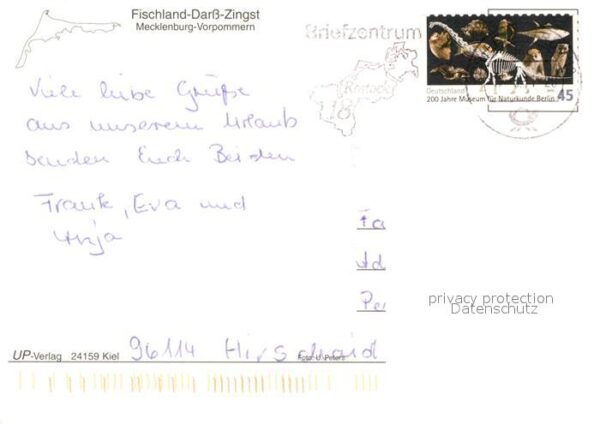 Fischland-Darß-Zingst
Mecklenburg-Vorpommern
Briefzentrum
Rostock
Deutschland
200 Jahre Museum für Naturkunde Berlin 45
Viele liebe Grüße
aus unserem Urlaub
senden Euch Beiden
Frank, Eva und
Anja
Fa
Ad
Pe
privacy protection
Datenschutz
96114 Hirschaid
UP-Verlag 24159 Kiel
Foto: U. Peters